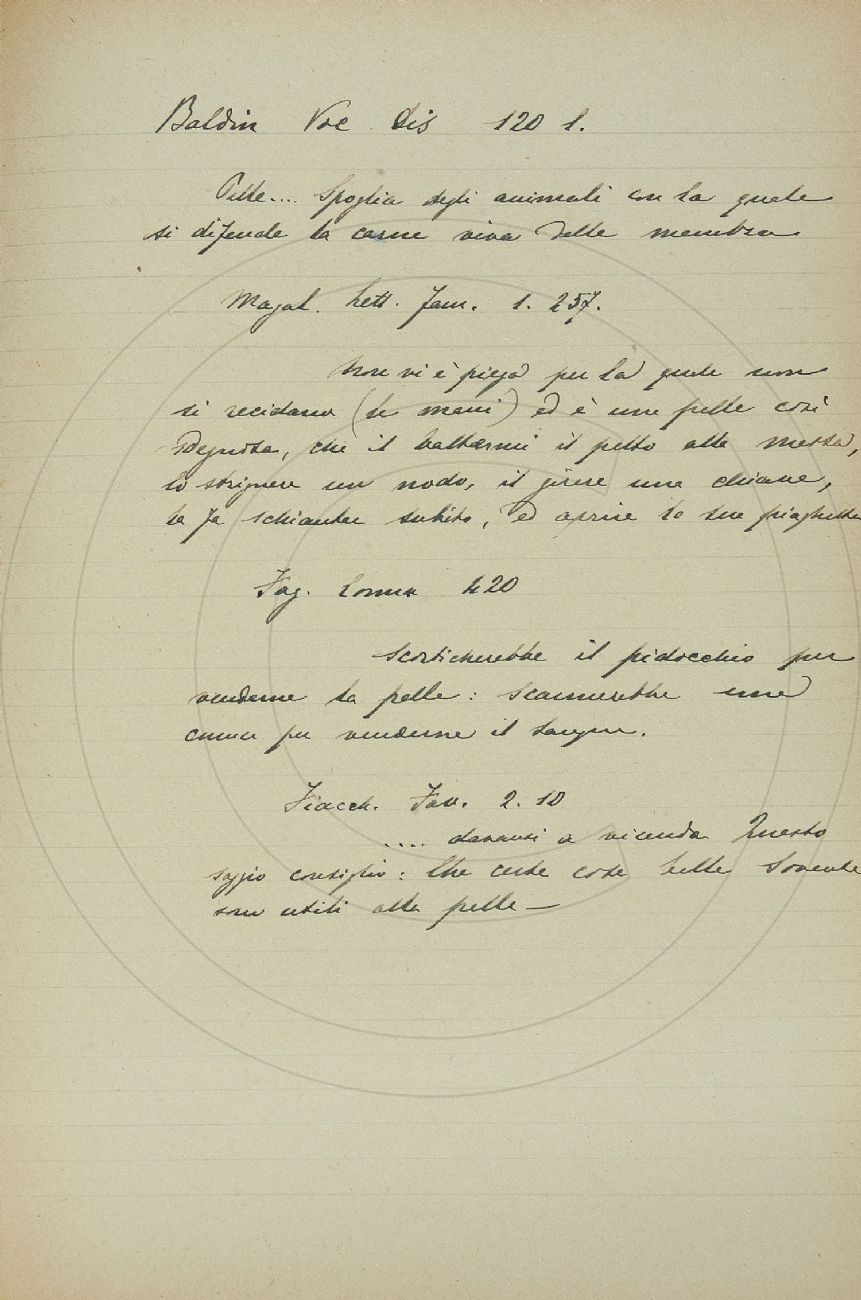 Baldin Voc Dis 120 1.
Pelle.... Spoglia degli animali con la quale
si difende la carne viva delle membra
Magal. Lett. Fam. 1. 257.
Non vi è piega per la quale non
si recidano (le mani) ed è una pelle così
sdegnosa, che il battermi il petto alla messa,
lo strignere un nodo, il girare una chiave,
la fa schiantar subito, ed aprire la sua piaghetta
Fag. Comm 420
Scorticherebbe il pidocchio per
venderne la pelle: scannerebbe una
cimice per venderne il sangue.
Fiacch. Fav. 2. 10
.... davansi a vicenda Questo
saggio consiglio: Che certe cose belle Sovente
son utili alla pelle —